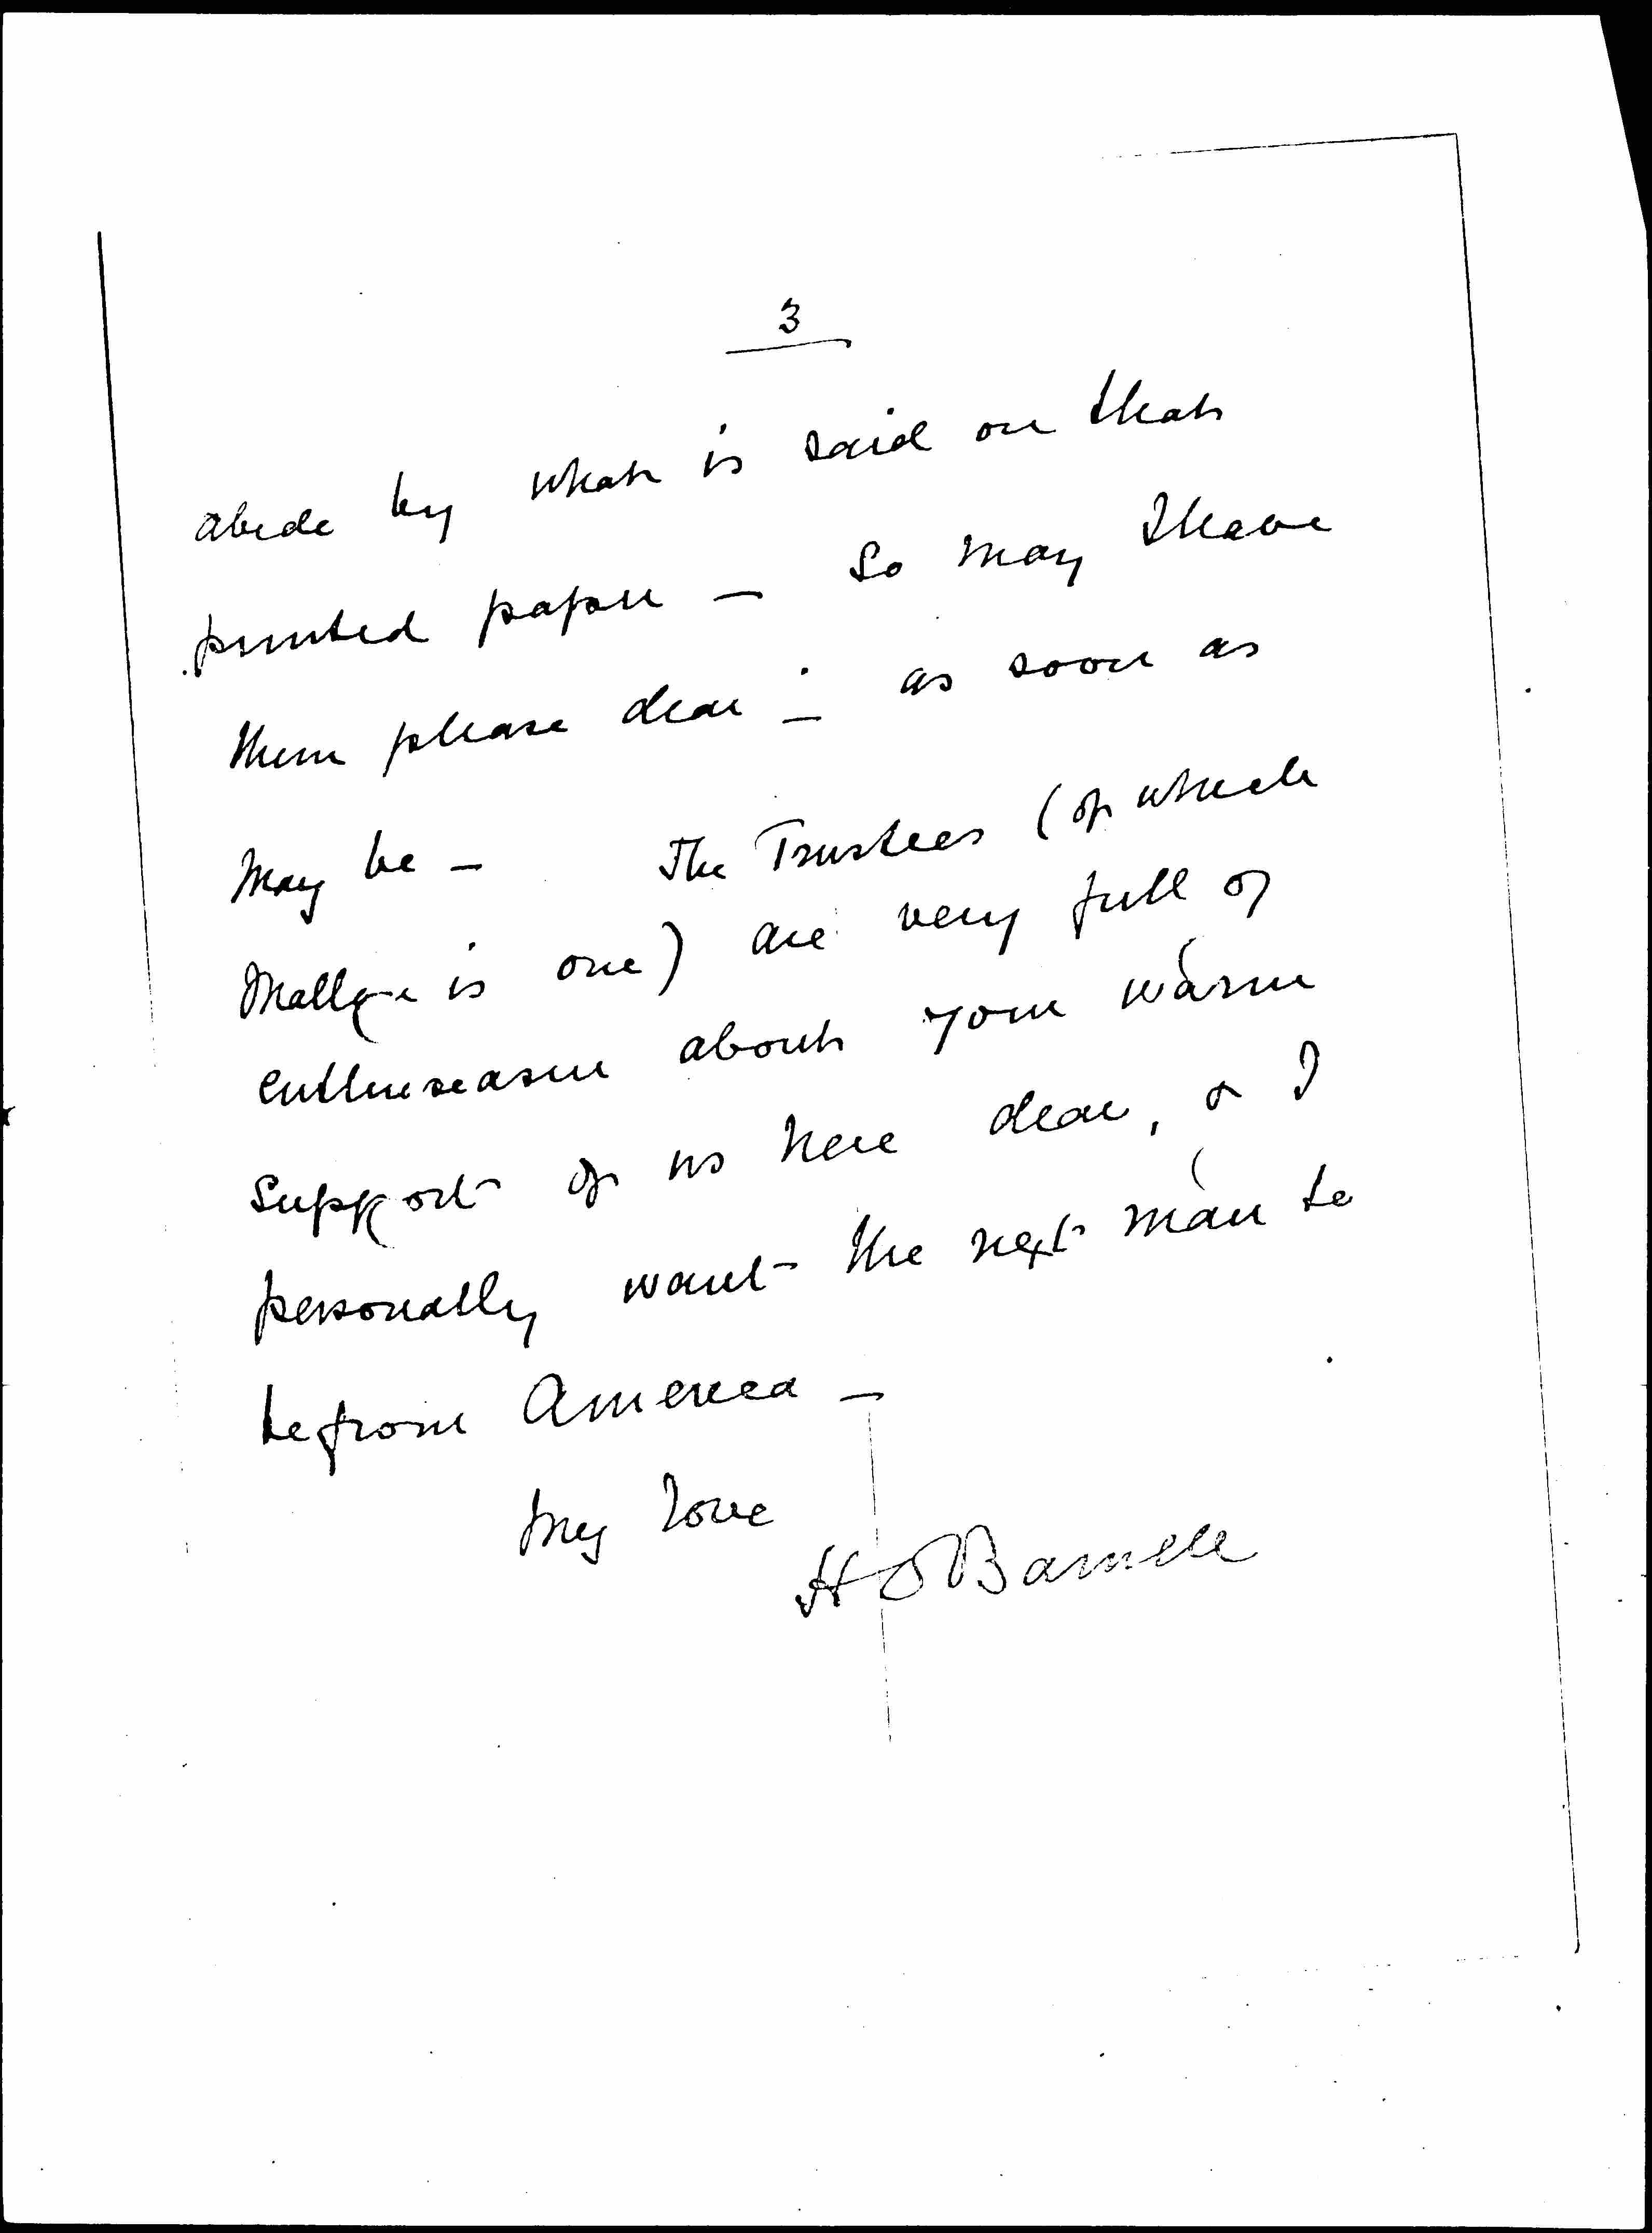 3
abide by what is said on that
printed paper — So may I have
them please dear — as soon as
may be — The Trustees (of which
is one) are very full of
enthusiasm about your warm
support of us here dear, & I
personally want the next man to
be from America —
My love